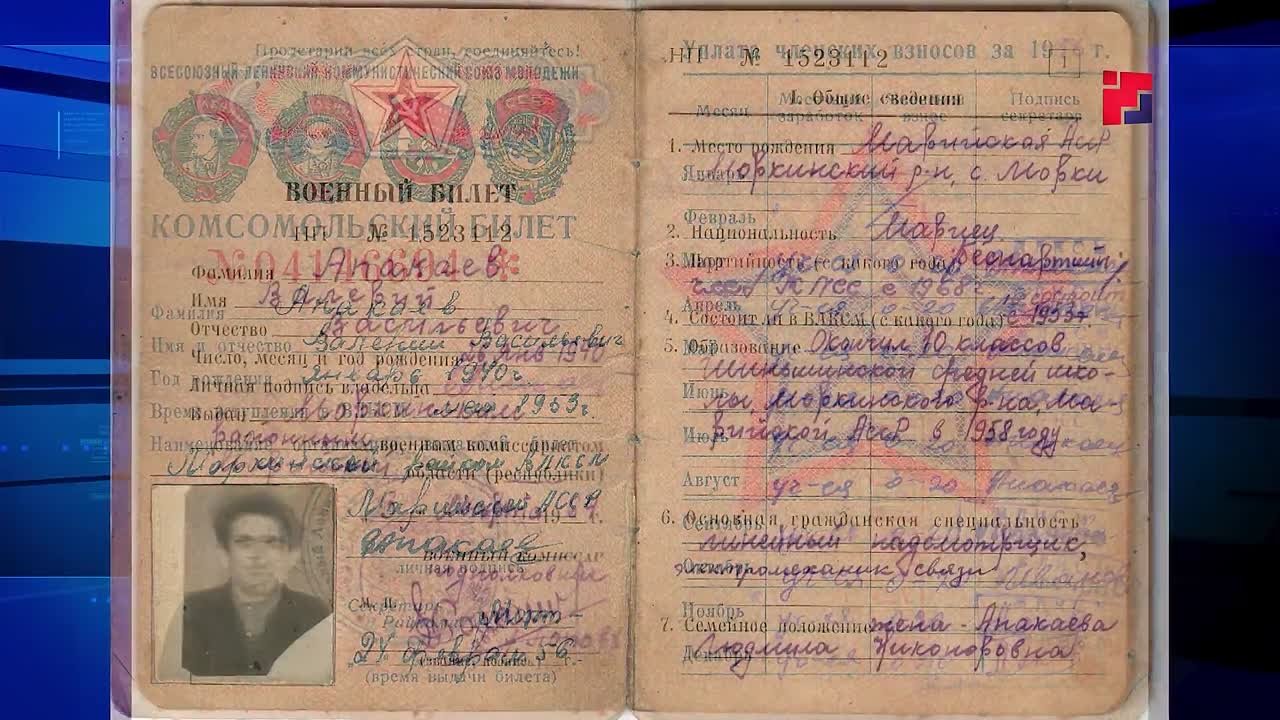 Пролетарии всех стран, соединяйтесь!
ВСЕСОЮЗНЫЙ ЛЕНИНСКИЙ КОММУНИСТИЧЕСКИЙ СОЮЗ МОЛОДЕЖИ
ВОЕННЫЙ БИЛЕТ
КОМСОМОЛЬСКИЙ БИЛЕТ
НП № 1523112
Фамилия Анакаев
Имя Валерий
Фамилия Анакаев
Отчество Васильевич
Имя и отчество Валерий Васильевич
Число, месяц и год рождения
Год рождения январь 1940 г.
Личная подпись владельца
Время вступления в ВЛКСМ 1953 г.
Выдан Моркинским
районным военным комиссариатом
Моркинский райком ВЛКСМ
области (республики)
Марийской АССР
Анакаев
личная подпись
подполковник
М. П.
Секретарь
Райкома
24 февраля 56
(время выдачи билета)
Уплата членских взносов за 19 г.
НП № 1523112
1
I. Общие сведения
Месяц заработок взнос Подпись секретаря
1. Место рождения Марийская АССР
Январь
Моркинский р-н, с. Морки
Февраль
2. Национальность Мариец
3. Партийность (с какого года) Беспартийный
член КПСС с 1968 г
Апрель
4. Состоит ли в ВЛКСМ (с какого года) с 1953 г.
5. Образование Окончил 10 классов
Шиньшинской средней шко-
Июнь
лы, Моркинского р-на, Ма-
Июль
рийской АССР в 1958 году
Август уч-ся 0-20 Анакаев
6. Основная гражданская специальность
Сентябрь
линейный надсмотрщик,
Октябрь
электромеханик связи
Ноябрь
7. Семейное положение жена - Анакаева
Декабрь
Людмила Никоноровна